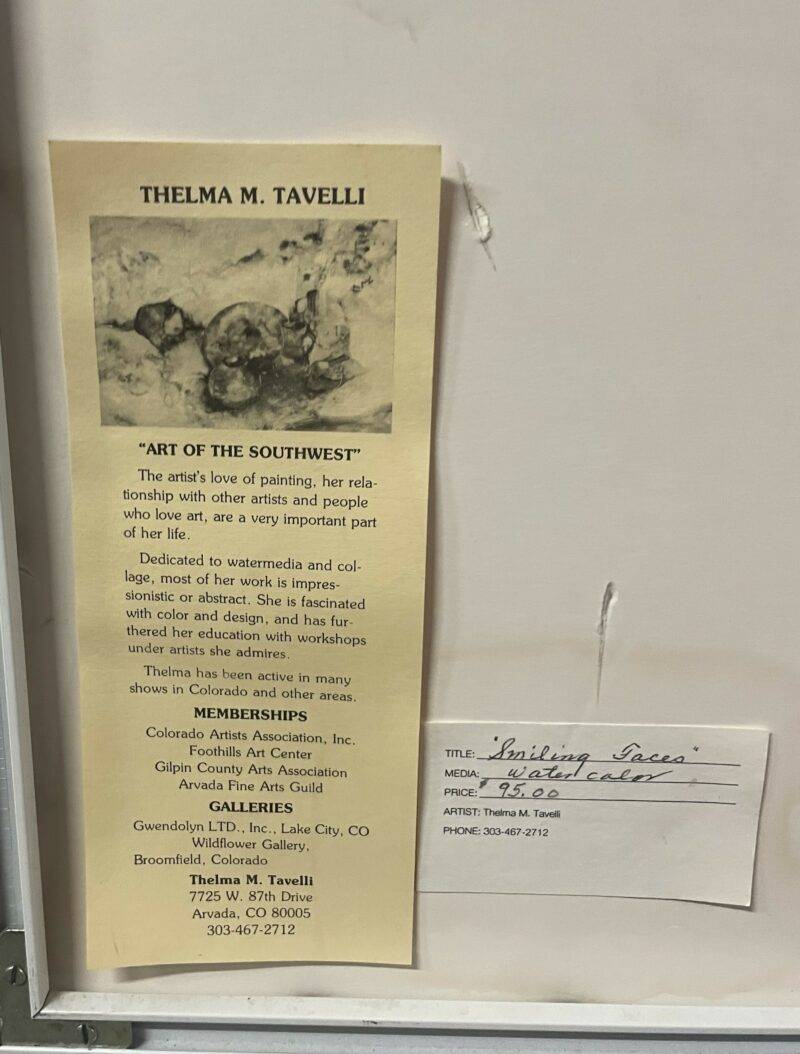 THELMA M. TAVELLI
"ART OF THE SOUTHWEST"
The artist's love of painting, her rela-
tionship with other artists and people
who love art, are a very important part
of her life.
Dedicated to watermedia and col-
lage, most of her work is impres-
sionistic or abstract. She is fascinated
with color and design, and has fur-
thered her education with workshops
under artists she admires.
Thelma has been active in many
shows in Colorado and other areas.
MEMBERSHIPS
Colorado Artists Association, Inc.
Foothills Art Center
Gilpin County Arts Association
Arvada Fine Arts Guild
GALLERIES
Gwendolyn LTD., Inc., Lake City, CO
Wildflower Gallery,
Broomfield, Colorado
Thelma M. Tavelli
7725 W. 87th Drive
Arvada, CO 80005
303-467-2712
TITLE: "Smiling Faces"
MEDIA: water color
PRICE: $95.00
ARTIST: Thelma M. Tavelli
PHONE: 303-467-2712